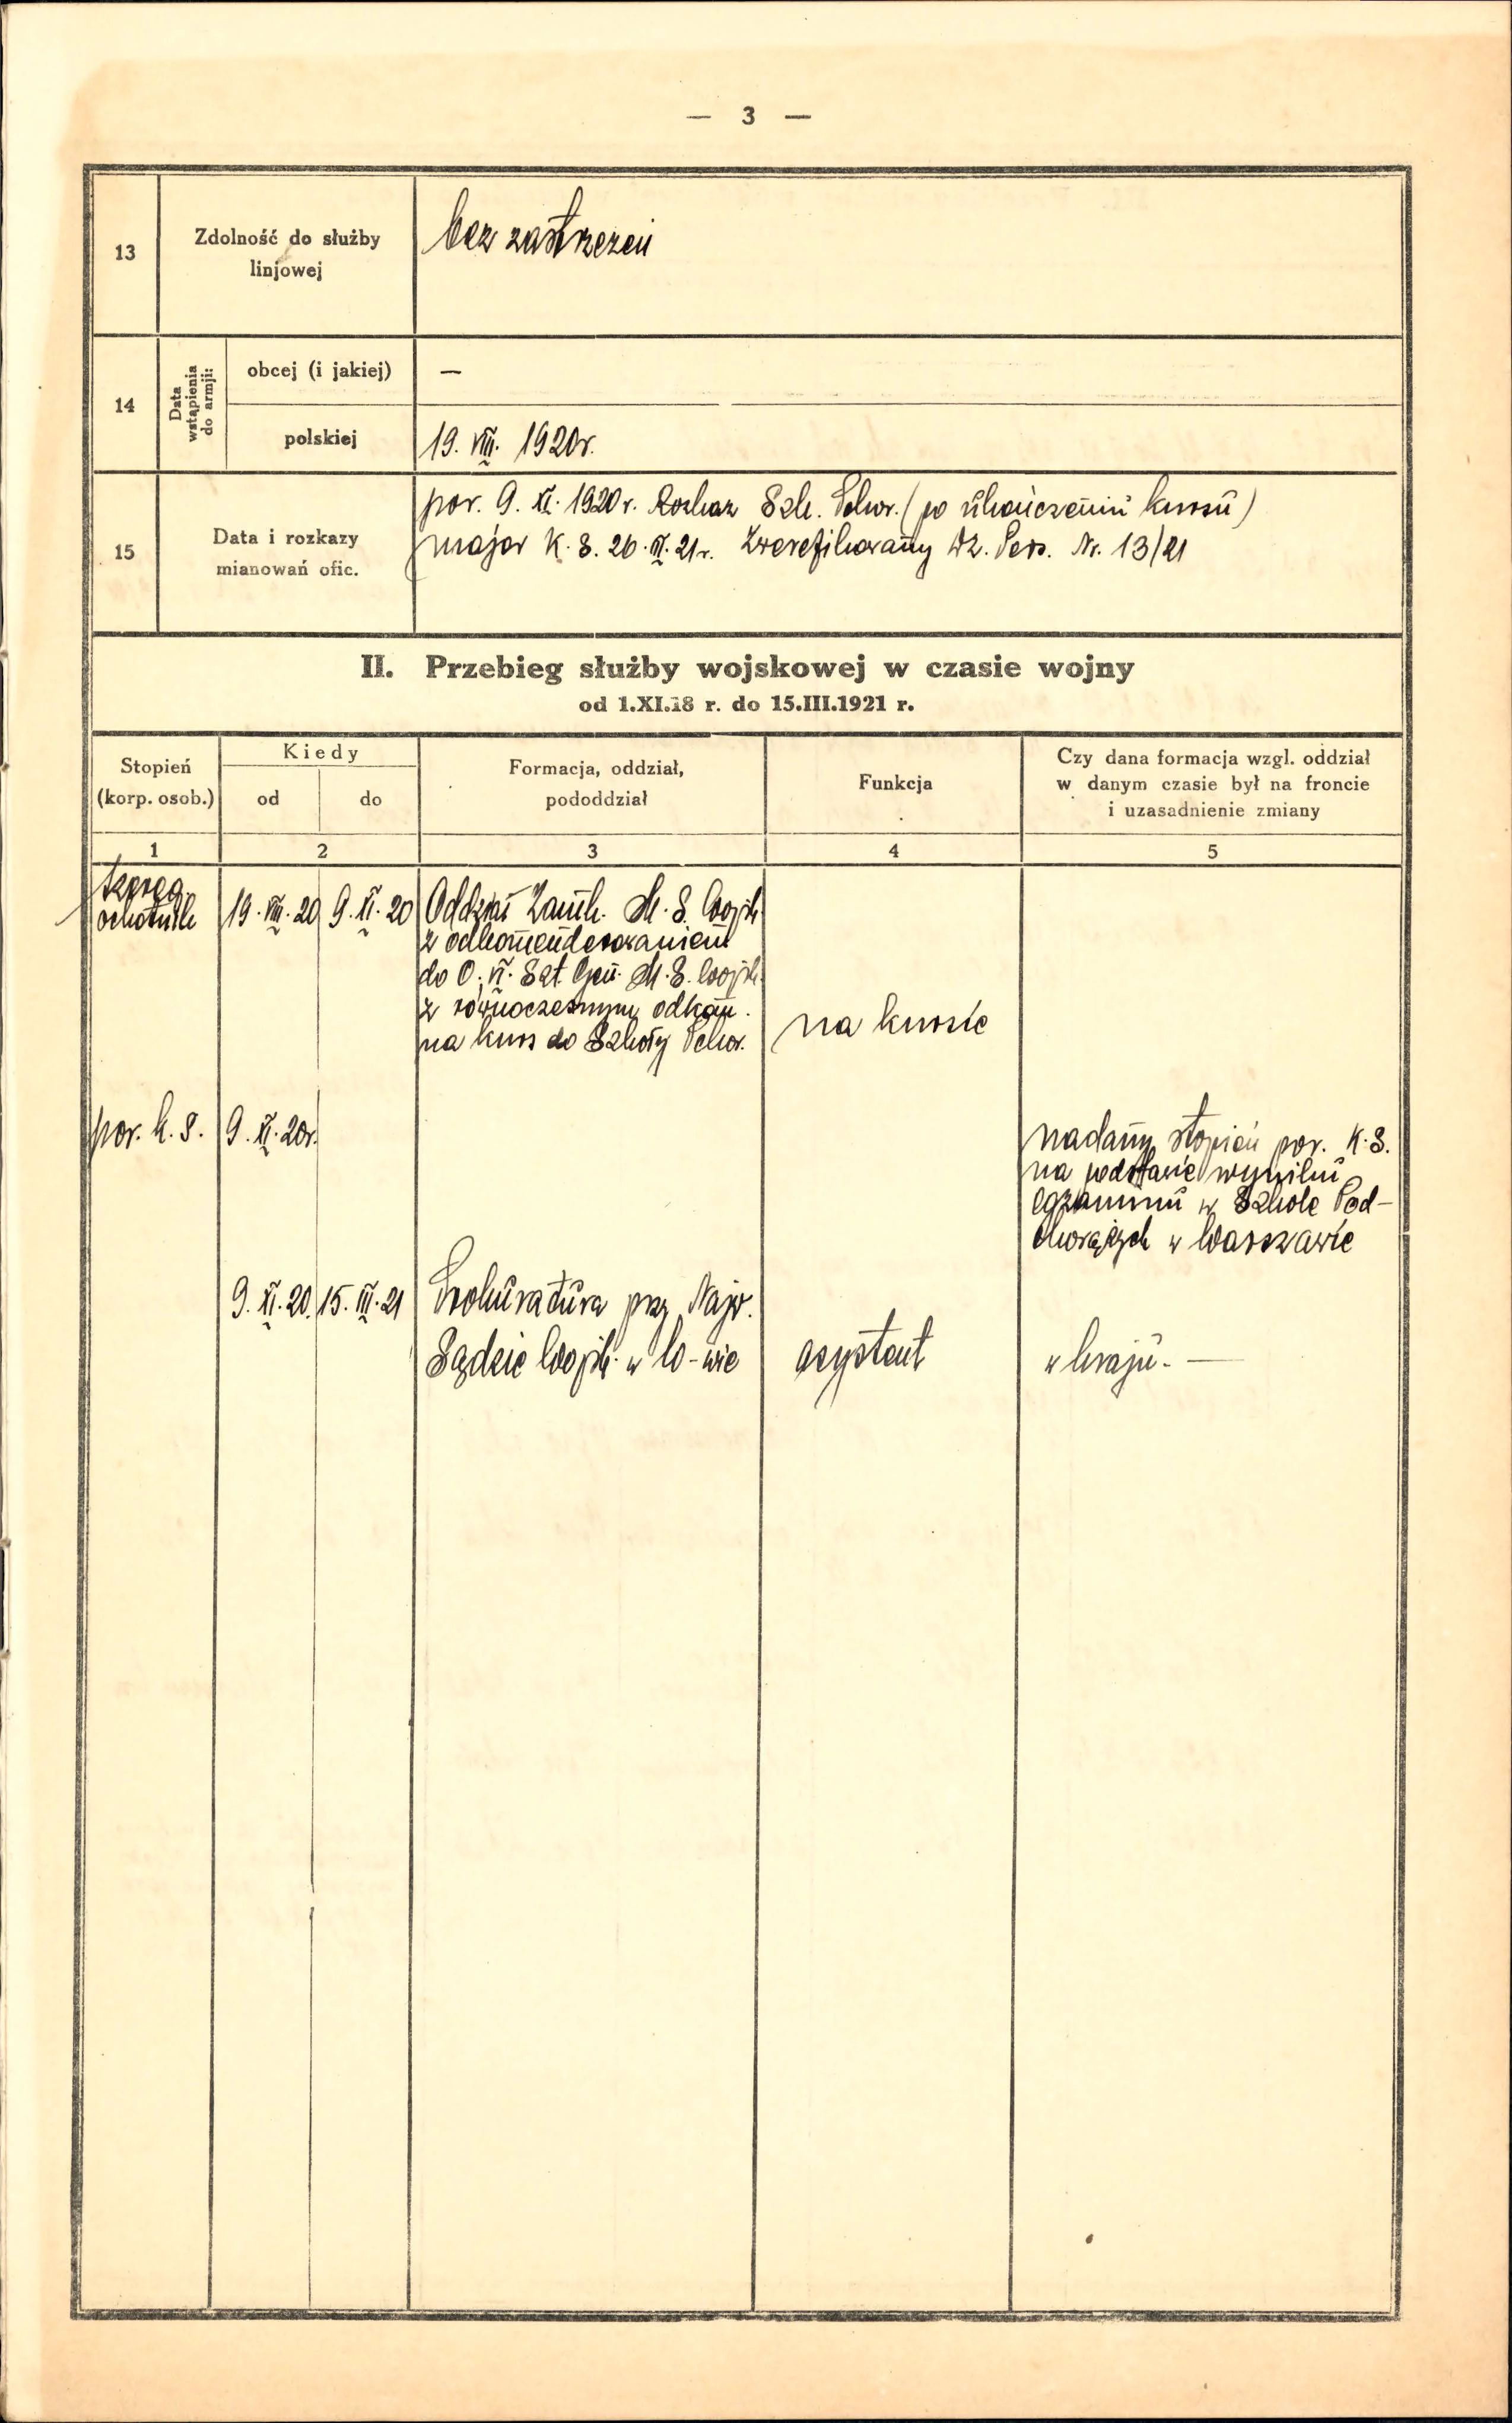 — 3 —
13
Zdolność do służby
linjowej
bez zastrzeżeń
14
Data
wstąpienia
do armji:
obcej (i jakiej)
—
polskiej
19. VIII. 1920 r.
15
Data i rozkazy
mianowań ofic.
por. 9. XI. 1920 r. Rozkaz Szk. Pchor. (po ukończeniu kursu)
major K. S. 26. 21 r. Zweryfikowany Dz. Pers. Nr. 13/21
II. Przebieg służby wojskowej w czasie wojny
od 1.XI.18 r. do 15.III.1921 r.
Stopień
(korp. osob.)
Kiedy
od
do
Formacja, oddział,
pododdział
Funkcja
Czy dana formacja wzgl. oddział
w danym czasie był na froncie
i uzasadnienie zmiany
1
2
3
4
5
szereg.
ochotnik
19. VIII. 20
9. XI. 20
Oddział M. S. Wojsk
z odkomenderowaniem
do O. VI. Szt. Gen. M. S. Wojsk.
z równoczesnym odkom.
na kurs do Szkoły Pchor.
na kursie
por. k. s.
9. XI. 20 r.
nadany stopień por. K. S.
na podstawie wyniku
egzaminu w Szkole Pod-
chorążych w Warszawie
9. XI. 20.
15. III. 21
Prokuratura prz. Najw.
Sądzie Wojsk. w W-wie
asystent
w kraju. —